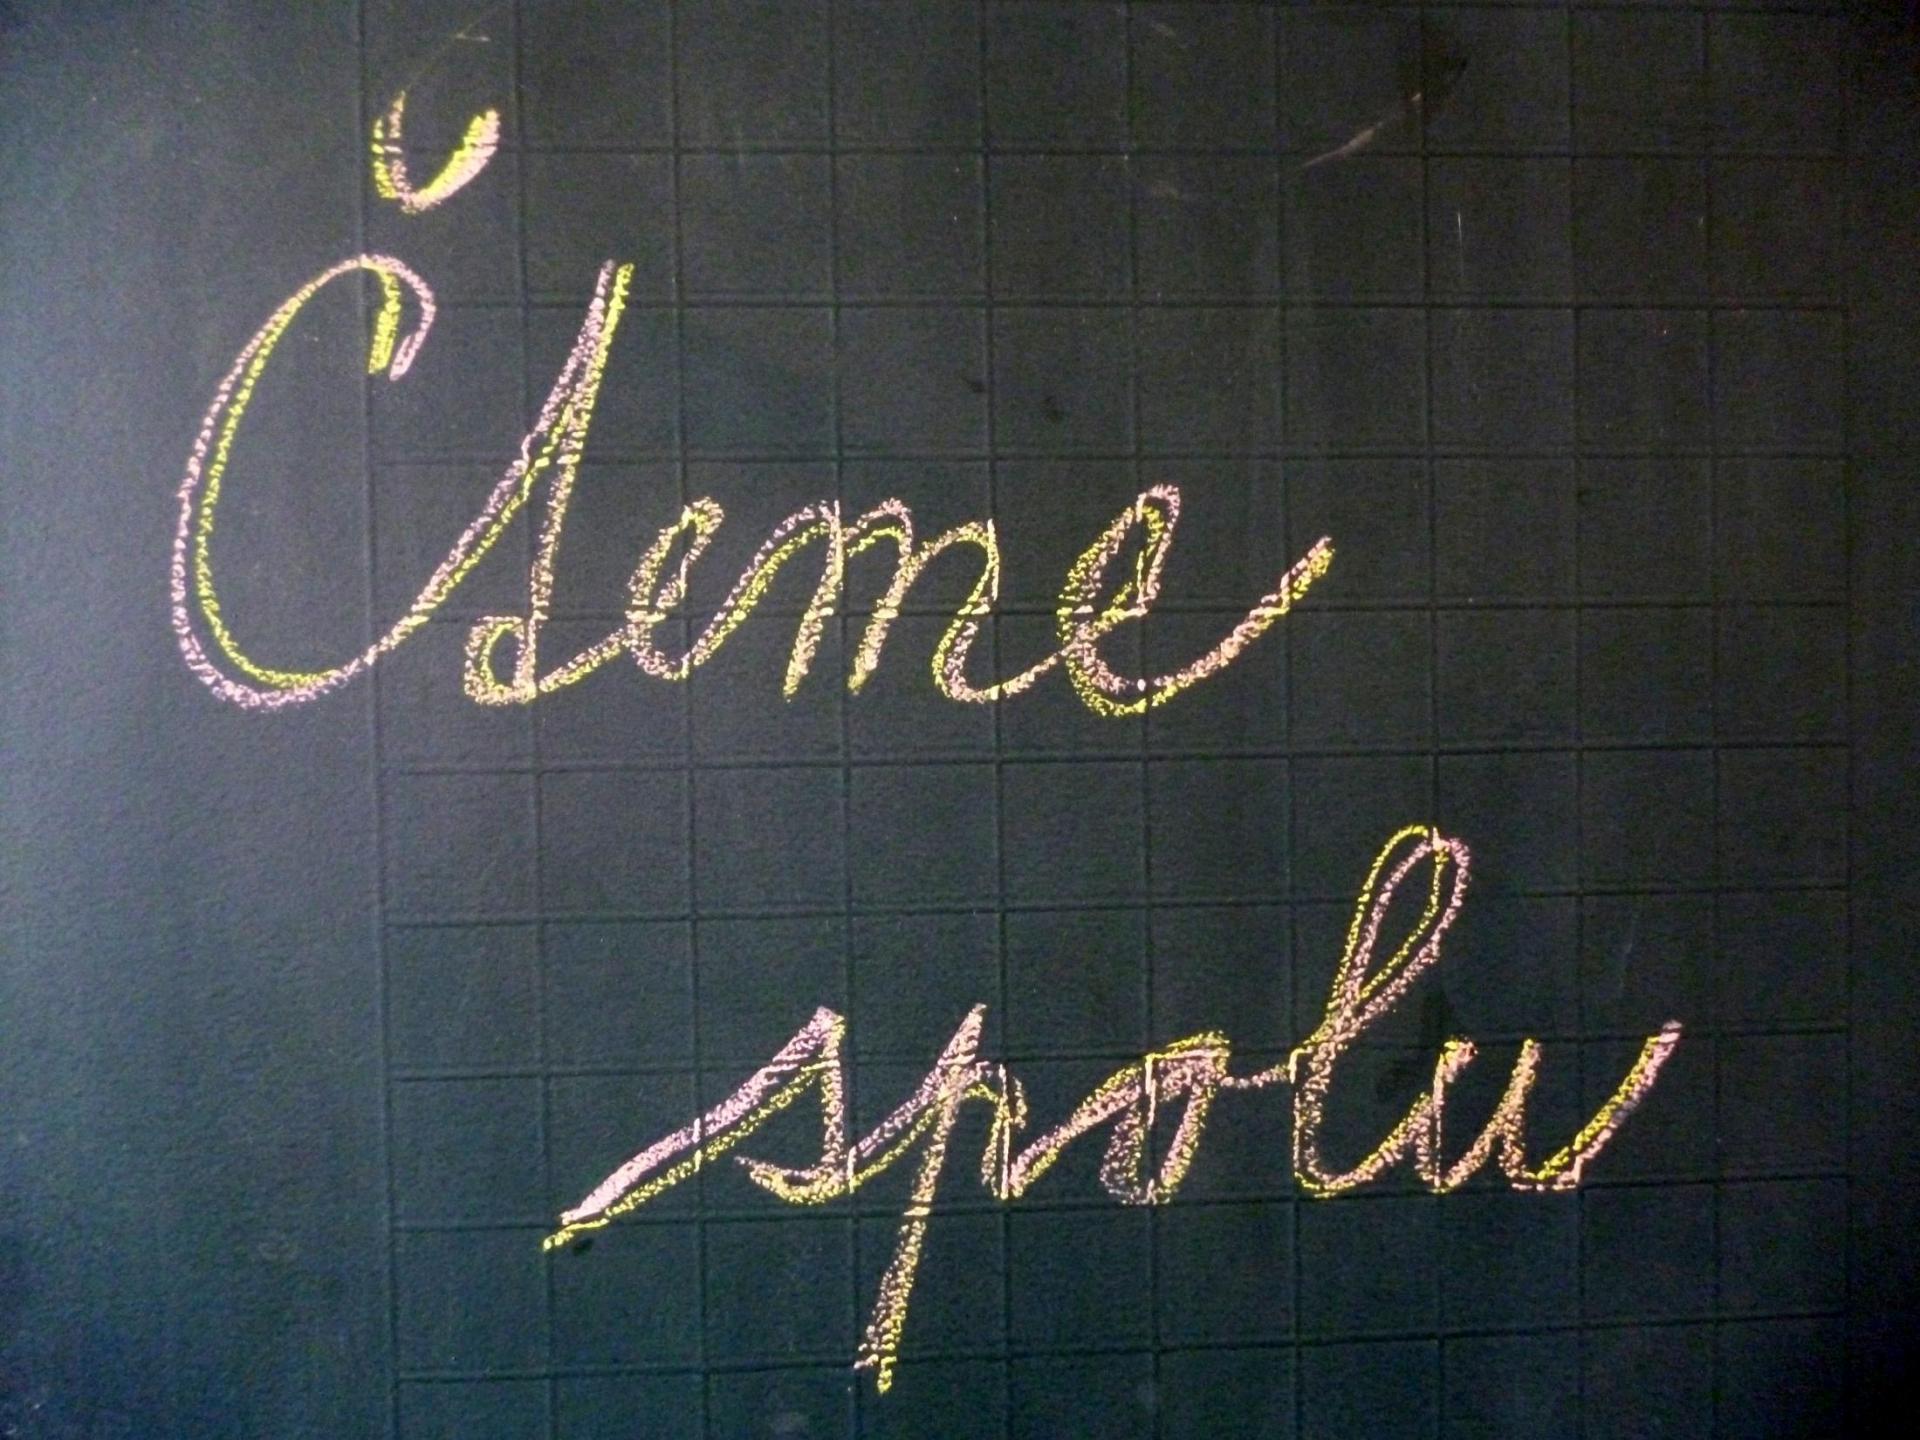 Čteme
spolu